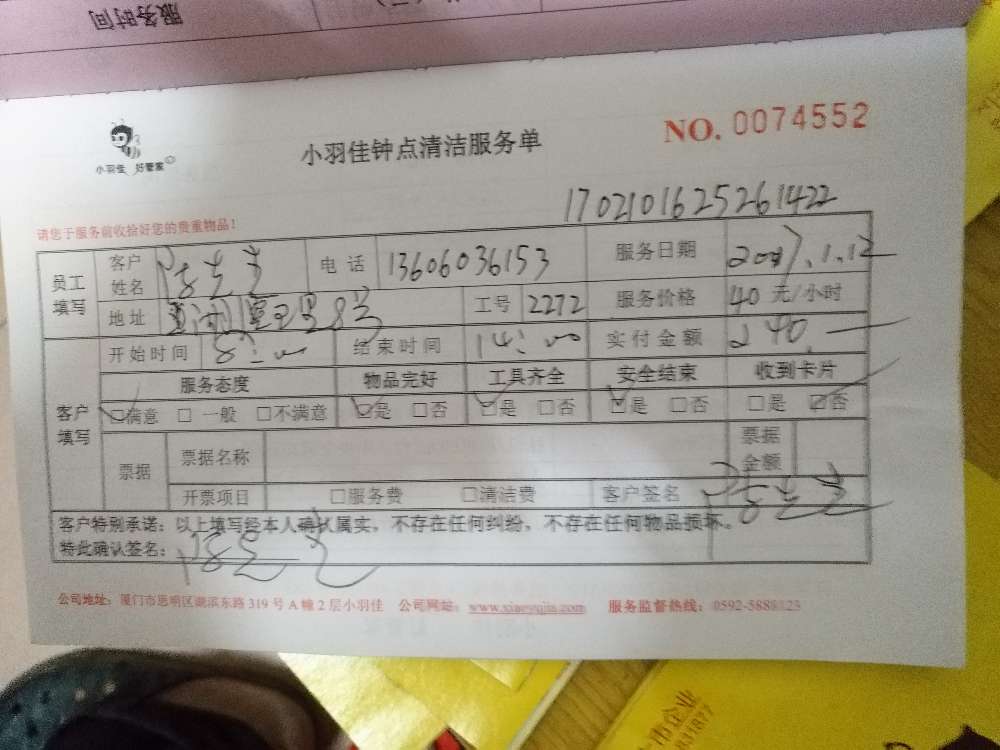 服务时间
小羽佳 好管家
小羽佳钟点清洁服务单
NO. 0074552
1702101625261422
请您于服务前收拾好您的贵重物品！
员工填写 客户姓名 电话 13606036153 服务日期 2007.1.12
地址 8号 工号 2272 服务价格 40 元/小时
开始时间 8:00 结束时间 14:00 实付金额 240
客户填写 服务态度 物品完好 工具齐全 安全结束 收到卡片
☑满意 □一般 □不满意 ☑是 □否 ☑是 □否 ☑是 □否 □是 ☑否
票据 票据名称 票据金额
开票项目 □服务费 □清洁费 客户签名
客户特别承诺：以上填写经本人确认属实，不存在任何纠纷，不存在任何物品损坏。
特此确认签名：
公司地址：厦门市思明区湖滨东路 319 号 A 幢 2 层小羽佳 公司网站：www.xiaoyujia.com 服务监督热线：0592-5888123